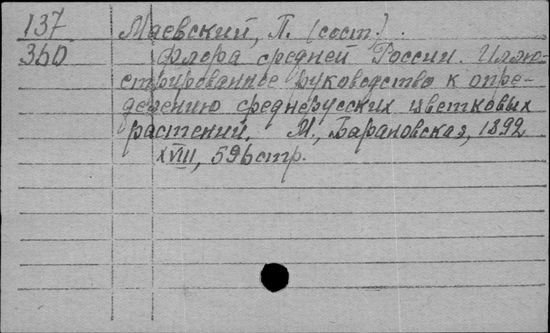 137 Маевский, П. (сост.).
360 Флора средней России. Иллю-
стрированное руководство к опре-
делению среднерусских цветковых
растений. М., Барановская, 1892
XVIII, 596 стр.